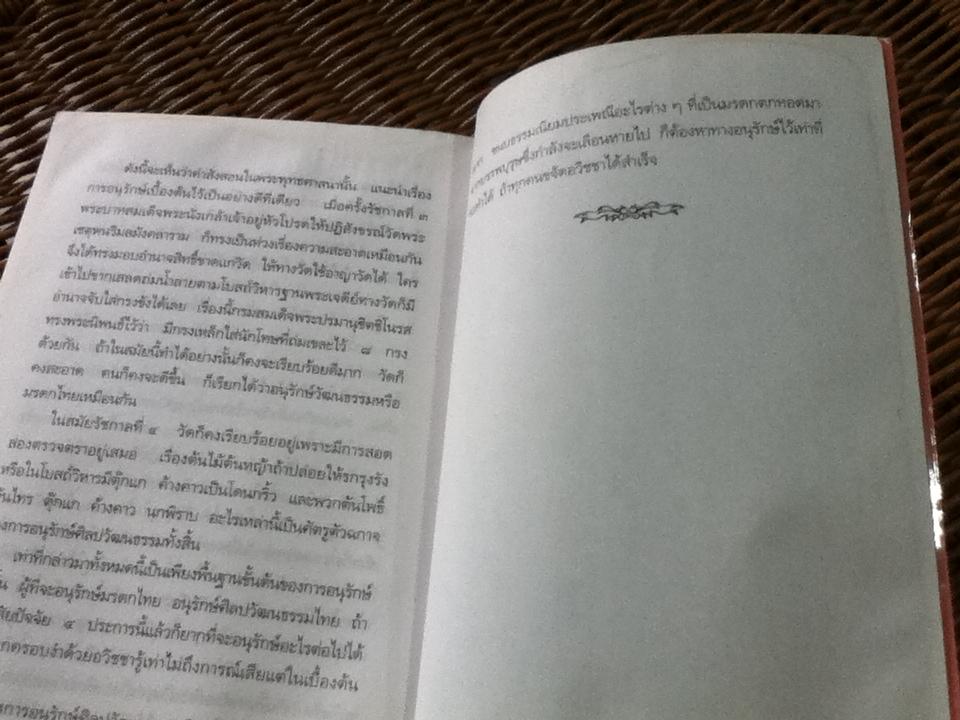 ดังนี้จะเห็นว่าคำสั่งสอนในพระพุทธศาสนานั้น แนะนำเรื่อง
การอนุรักษ์เบื้องต้นไว้เป็นอย่างดีทีเดียว เมื่อครั้งรัชกาลที่ ๓
พระบาทสมเด็จพระนั่งเกล้าเจ้าอยู่หัวโปรดให้ปฏิสังขรณ์วัดพระ
เชตุพนวิมลมังคลาราม ก็ทรงเป็นห่วงเรื่องความสะอาดเหมือนกัน
จึงได้ทรงมอบอำนาจสิทธิ์ขาดแก่วัด ให้ทางวัดใช้อาญาวัดได้ ใคร
เข้าไปขากเสลดถ่มน้ำลายตามโบสถ์วิหารฐานพระเจดีย์ทางวัดก็มี
อำนาจจับใส่กรงขังได้เลย เรื่องนี้กรมสมเด็จพระปรมานุชิตชิโนรส
ทรงพระนิพนธ์ไว้ว่า มีกรงเหล็กใส่นักโทษที่ถ่มเขฬะไว้ ๘ กรง
ด้วยกัน ถ้าในสมัยนี้ทำได้อย่างนั้นก็คงจะเรียบร้อยดีมาก วัดก็
คงสะอาด คนก็คงจะดีขึ้น ก็เรียกได้ว่าอนุรักษ์วัฒนธรรมหรือ
มรดกไทยเหมือนกัน
ในสมัยรัชกาลที่ ๔ วัดก็คงเรียบร้อยอยู่เพราะมีการสอด
ส่องตรวจตราอยู่เสมอ เรื่องต้นไม้ต้นหญ้าถ้าปล่อยให้รกรุงรัง
หรือในโบสถ์วิหารมีตุ๊กแก ค้างคาวเป็นโดนกริ้ว และพวกต้นโพธิ์
ต้นไทร ตุ๊กแก ค้างคาว นกพิราบ อะไรเหล่านี้เป็นศัตรูตัวฉกาจ
ของการอนุรักษ์ศิลปวัฒนธรรมทั้งสิ้น
เท่าที่กล่าวมาทั้งหมดนี้เป็นเพียงพื้นฐานชั้นต้นของการอนุรักษ์
ผู้ที่จะอนุรักษ์มรดกไทย อนุรักษ์ศิลปวัฒนธรรมไทย ถ้า
ปัจจัย ๔ ประการนี้แล้วก็ยากที่จะอนุรักษ์อะไรต่อไปได้
ครอบงำด้วยอวิชชารู้เท่าไม่ถึงการณ์เสียแต่ในเบื้องต้น
การอนุรักษ์
ขนบธรรมเนียมประเพณีอะไรต่าง ๆ ที่เป็นมรดกตกทอดมา
บรรพบุรุษซึ่งกำลังจะเลือนหายไป ก็ต้องหาทางอนุรักษ์ไว้เท่าที่
ทำได้ ถ้าทุกคนขจัดอวิชชาได้สำเร็จ